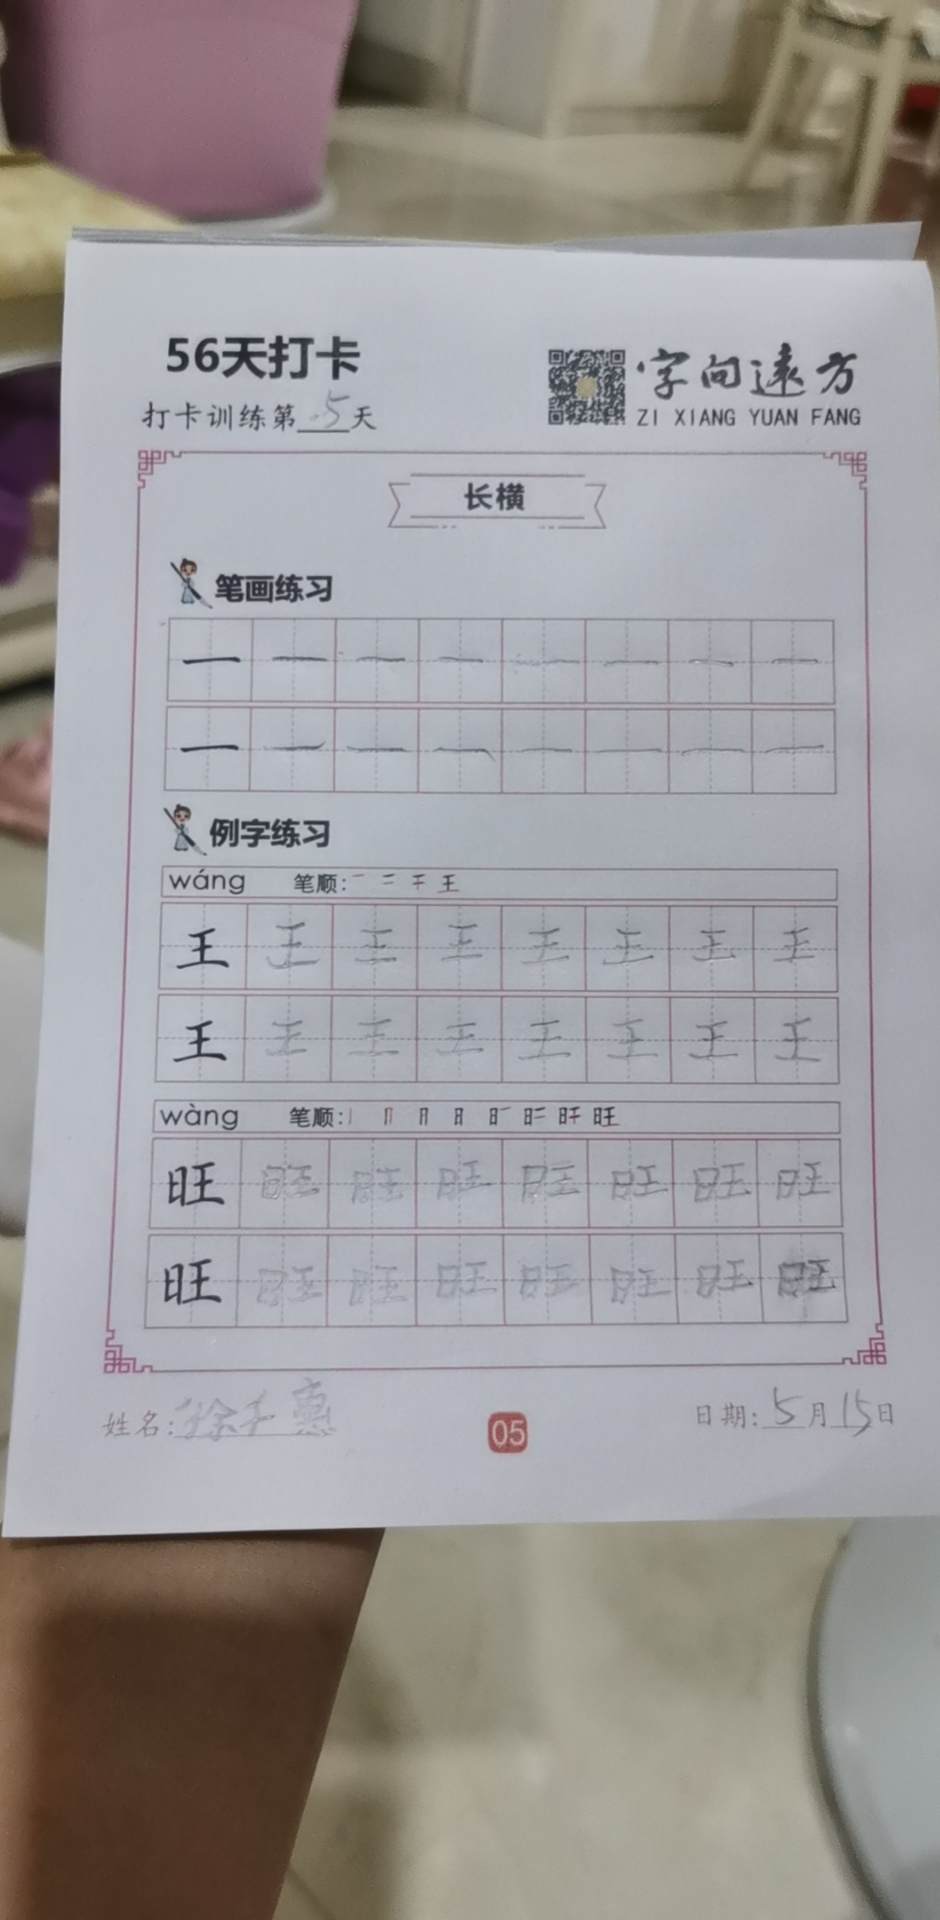 56天打卡
打卡训练第5天
字向遠方
ZI XIANG YUAN FANG
长横
笔画练习
一 一 一 一 一 一 一 一
一 一 一 一 一 一 一 一
例字练习
wáng 笔顺: 一 二 干 王
王 王 王 王 王 王 王 王
王 王 王 王 王 王 王 王
wàng 笔顺: 旺
旺 旺 旺 旺 旺 旺 旺 旺
旺 旺 旺 旺 旺 旺 旺 旺
姓名:徐千惠
05
日期:5月15日